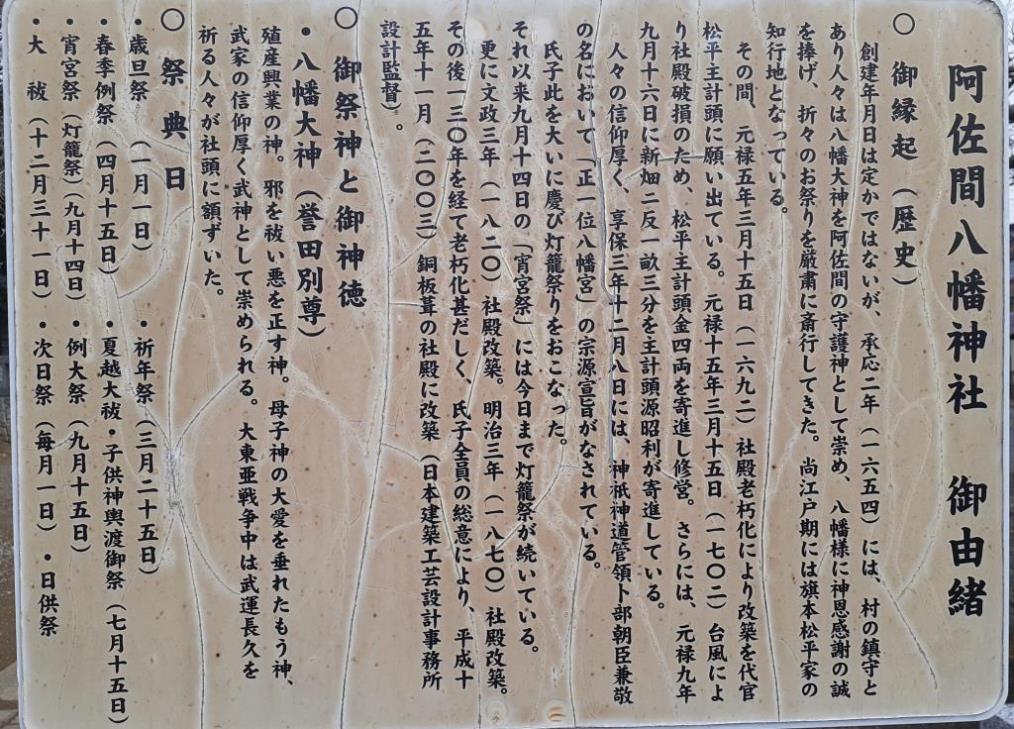 阿佐間八幡神社 御由緒
○ 御縁起(歴史)
創建年月日は定かではないが、承応二年(一六五四)には、村の鎮守と
あり人々は八幡大神を阿佐間の守護神として崇め、八幡様に神恩感謝の誠
を捧げ、折々のお祭りを厳粛に斎行してきた。尚江戸期には旗本松平家の
知行地となっている。
その間、元禄五年三月十五日(一六九二)社殿老朽化により改築を代官
松平主計頭に願い出ている。元禄十五年三月十五日(一七〇二)台風によ
り社殿破損のため、松平主計頭金四両を寄進し修営。さらには、元禄九年
九月十六日に新畑二反一畝三分を主計頭源昭利が寄進している。
人々の信仰厚く、享保三年十二月八日には、神祇神道管領卜部朝臣兼敬
の名において「正一位八幡宮」の宗源宣旨がなされている。
氏子此を大いに慶び灯籠祭りをおこなった。
それ以来九月十四日の「宵宮祭」には今日まで灯籠祭が続いている。
更に文政三年(一八二〇)社殿改築。明治三年(一八七〇)社殿改築。
その後一三〇年を経て老朽化甚だしく、氏子全員の総意により、平成十
五年十一月(二〇〇三)銅板葺の社殿に改築(日本建築工芸設計事務所
設計監督)。
○ 御祭神と御神徳
・八幡大神(誉田別尊)
殖産興業の神。邪を祓い悪を正す神。母子神の大愛を垂れたもう神、
武家の信仰厚く武神として崇められる。大東亜戦争中は武運長久を
祈る人々が社頭に額ずいた。
○ 祭典日
・歳旦祭(一月一日) ・祈年祭(三月二十五日)
・春季例祭(四月十五日) ・夏越大祓・子供神輿渡御祭(七月十五日)
・宵宮祭(灯籠祭)(九月十四日) ・例大祭(九月十五日)
・大 祓(十二月三十一日) ・次日祭(毎月一日) ・日供祭